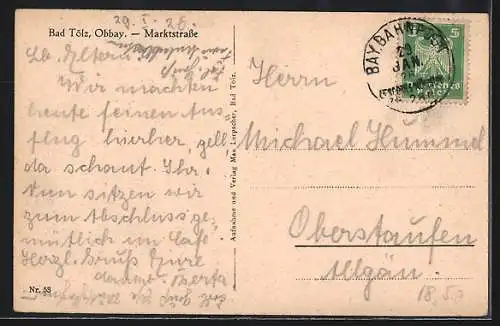 29. I. 26.
Bad Tölz, Obbay. — Marktstraße
Lb. Eltern!
Wir machten
heute feinen Aus
flug hierher, gell
da schaut Ihr.
Nun sitzen wir
zum Abschluss ge-
mütlich im Café
Herzl. Gruß Eure
dankb. Berta
Nr. 55
Aufnahme und Verlag Max Lerpscher, Bad Tölz.
BAYBAHNPOST
29
JAN
5
Herrn
Michael Hummel
Oberstaufen
Allgäu.
18,50